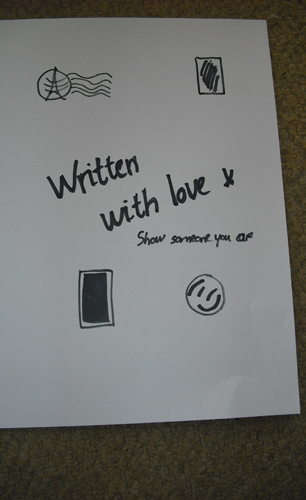 Written
with love x
Show someone you care